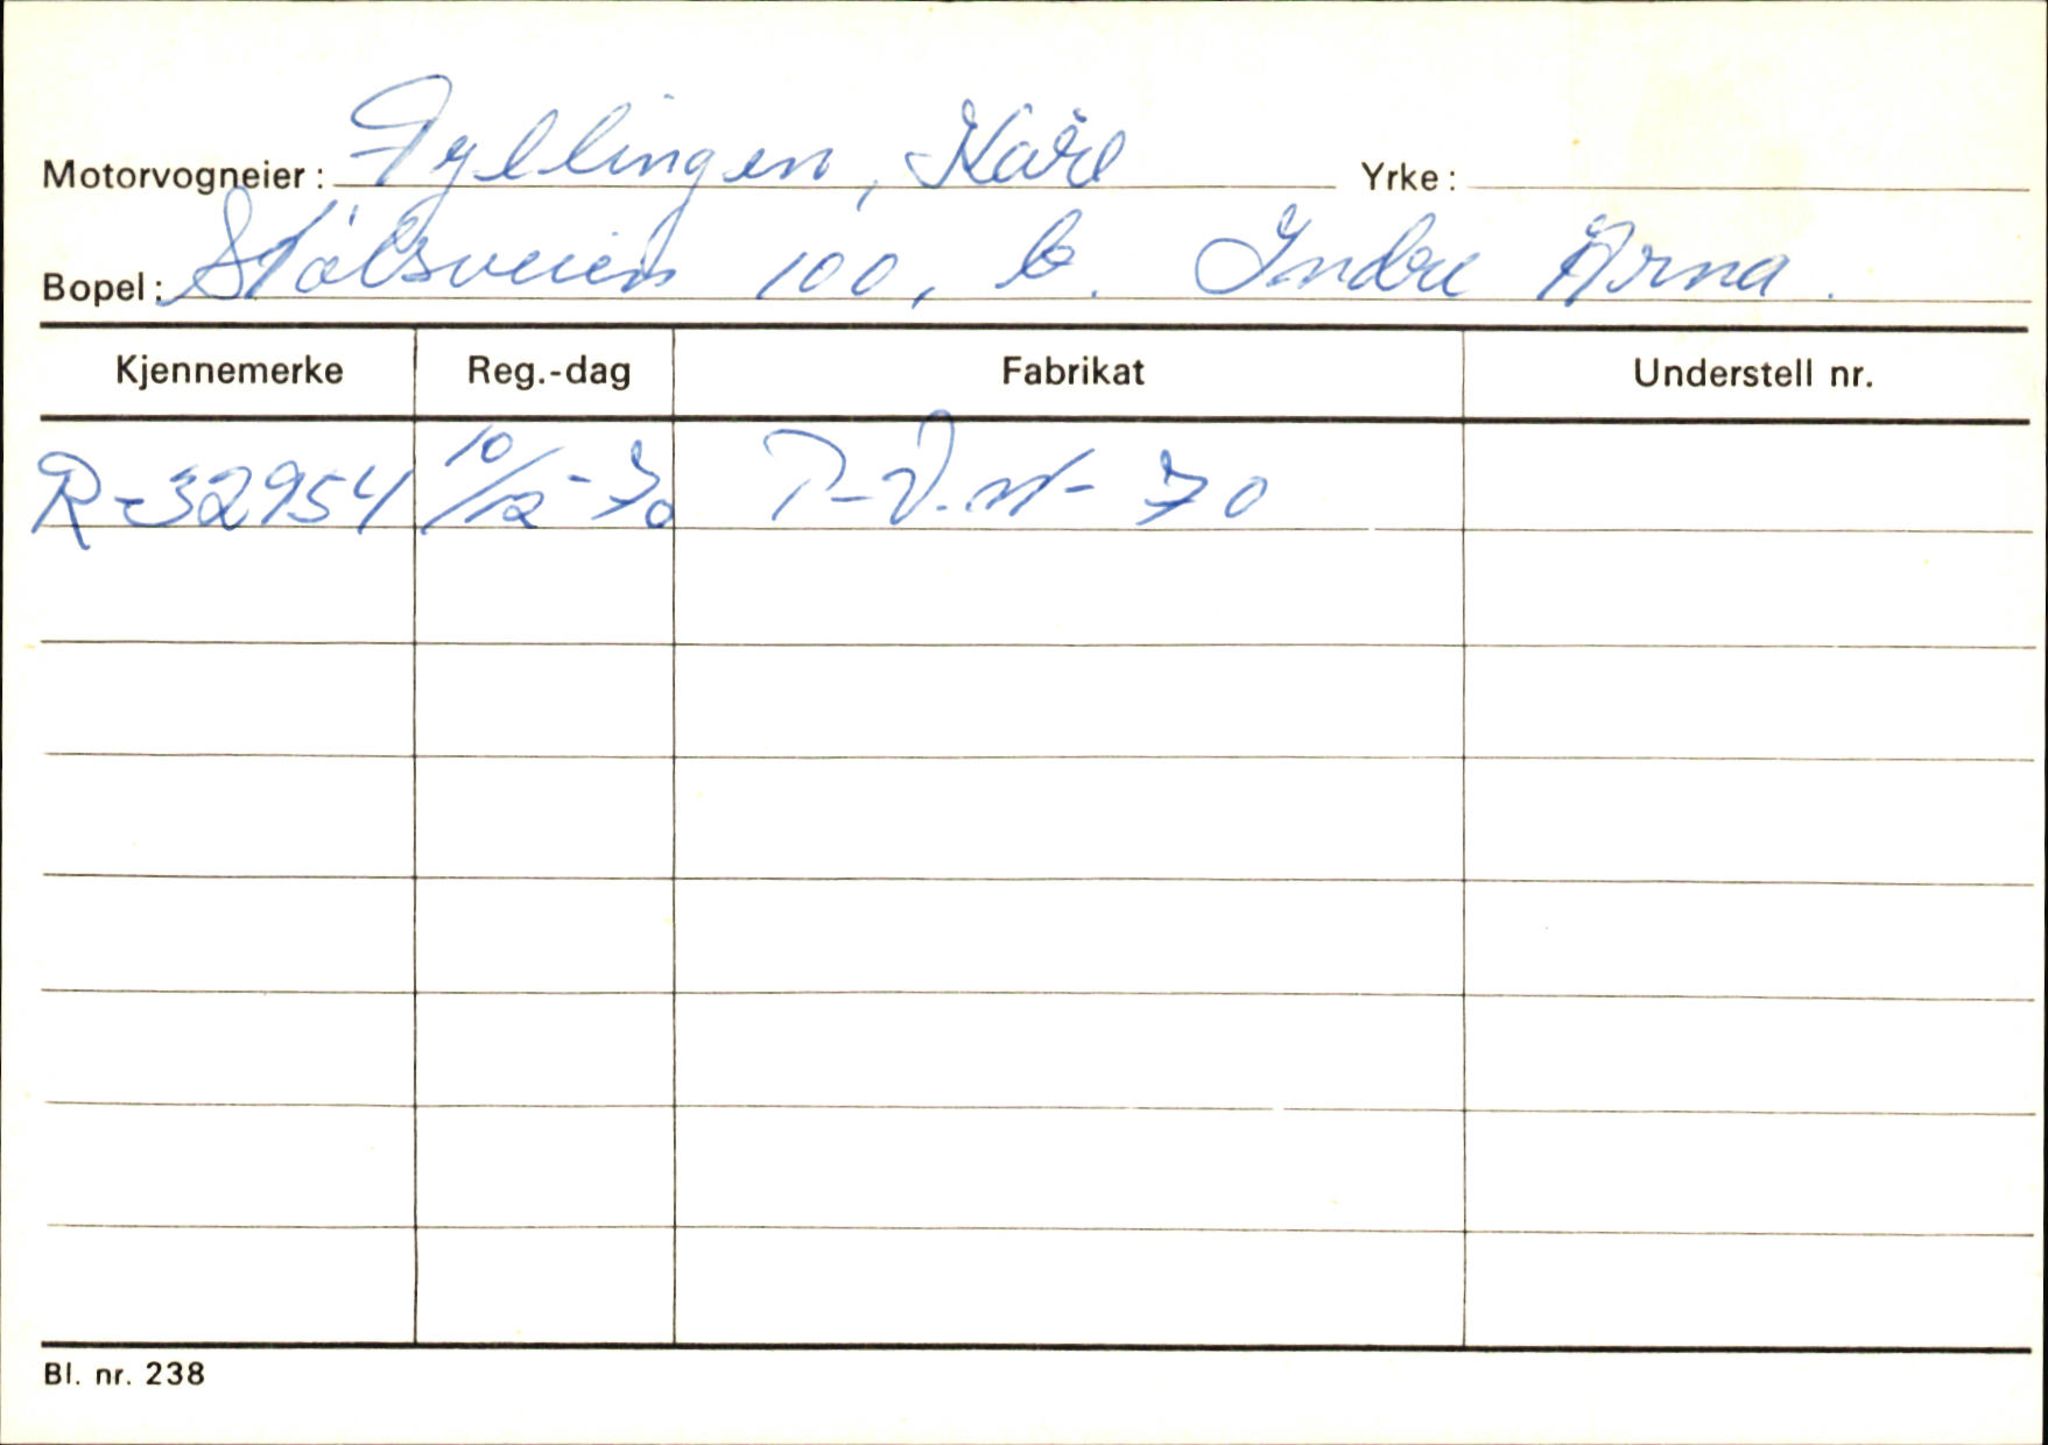 Motorvogneier: Fyllingen, Kåre Yrke:
Bopel: Stølsveien 100, b. Indre Arna.
Kjennemerke Reg.-dag Fabrikat Understell nr.
R-32954 10/12-70 P-V.st- 70
Bl. nr. 238